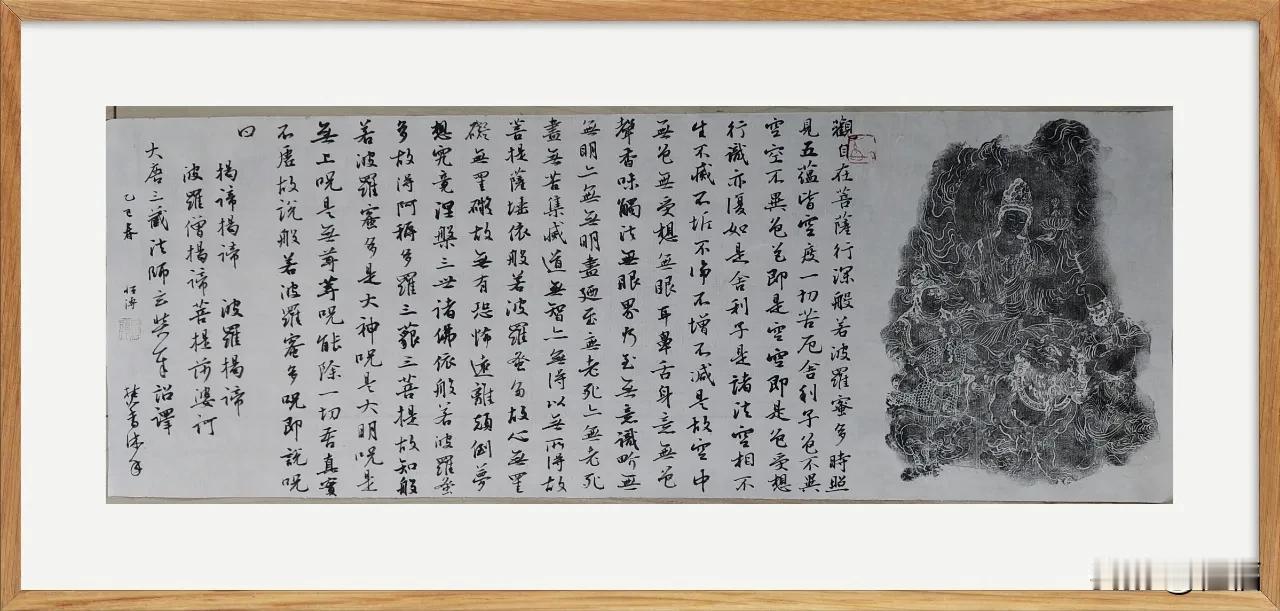 觀自在菩薩行深般若波羅蜜多時照
見五蘊皆空度一切苦厄舍利子色不異
空空不異色色即是空空即是色受想
行識亦復如是舍利子是諸法空相不
生不滅不垢不淨不增不减是故空中
無色無受想無眼耳鼻舌身意無色
聲香味觸法無眼界乃至無意識界無
無明亡無無明盡廼至無老死亡無老死
盡無苦集滅道無智亡無得以無所得故
菩提薩埵依般若波羅蜜多故心無罣
礙無罣礙故無有恐怖遠離顛倒夢
想究竟涅槃三世諸佛依般若波羅蜜
多故得阿耨多羅三藐三菩提故知般
若波羅蜜多是大神呪是大明呪是
無上呪是無等等呪能除一切苦真實
不虛故說般若波羅蜜多呪即說呪
曰
揭諦揭諦 波羅揭諦
波羅僧揭諦菩提薩婆訶
大唐三藏法師玄奘奉詔譯
乙巳春